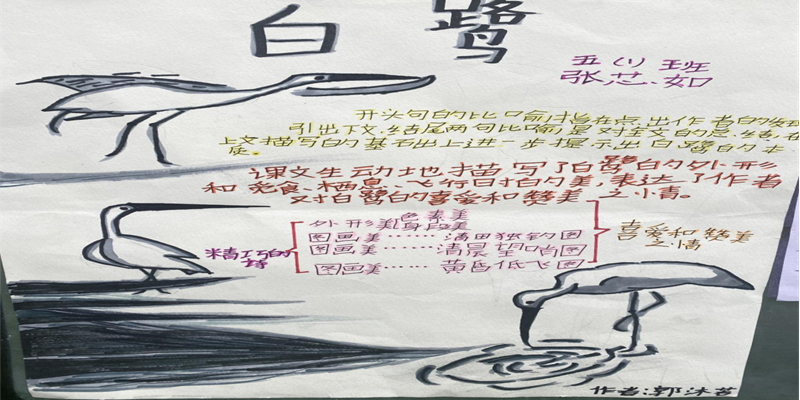 白鹭
五(1)班
张芯如
开头句的比喻,旨在点出作者的
引出下文,结尾两句比喻是对全文的总结,在
上文描写的基石出上进一步提示出白鹭的本
质。
课文生动地描写了白鹭的外形
和觅食、栖息、飞行日拍的美,表达了作者
对白鹭的喜爱和赞美之情。
色素美
外形美身段美
图画美……清田独钓图
图画美……清晨望哨图
图画美……黄昏低飞图
精巧的
诗
喜爱和赞美
之情
作者:郭沐茗